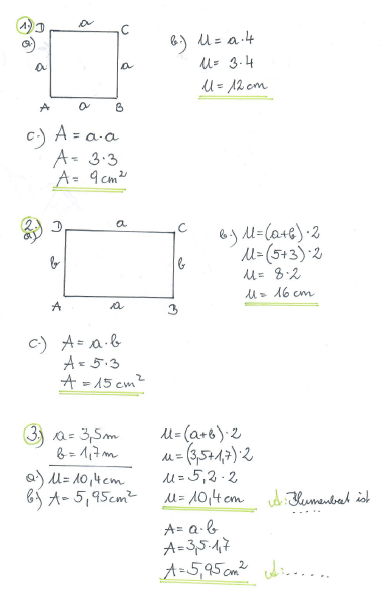 1.) D a C
a) a a
A a B
b.) u = a·4
u = 3·4
u = 12 cm
c.) A = a·a
A = 3·3
A = 9 cm²
2.) D a C
a) b b
A a B
b.) u = (a+b)·2
u = (5+3)·2
u = 8·2
u = 16 cm
c.) A = a·b
A = 5·3
A = 15 cm²
3.) a = 3,5 m
b = 1,7 m
a) u = 10,4 cm
b) A = 5,95 cm²
u = (a+b)·2
u = (3,5+1,7)·2
u = 5,2·2
u = 10,4 cm A: Blumenbeet ist
.....
A = a·b
A = 3,5·1,7
A = 5,95 cm² A: ......